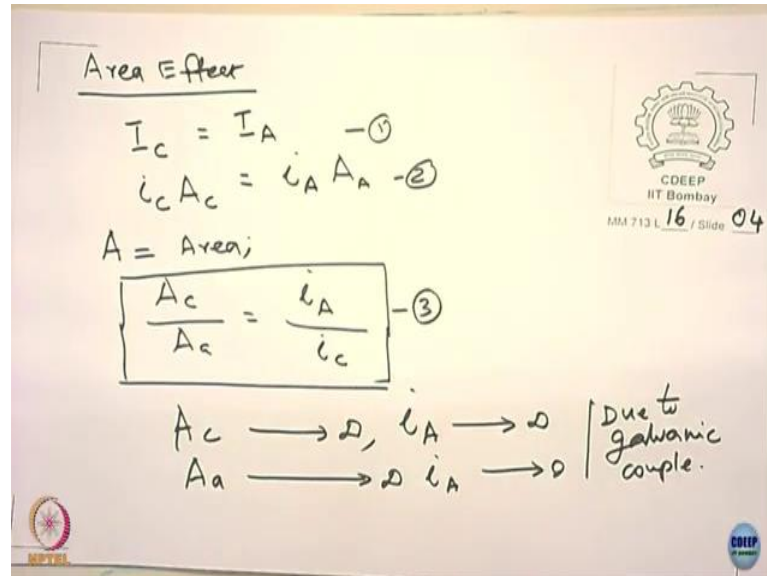 Area Effect
I_c = I_A - ①
i_c A_c = i_A A_A - ②
A = Area;
A_c / A_a = i_A / i_c - ③
A_c → ∞, i_A → ∞
A_a → ∞ i_A → 0
Due to
galvanic
couple.
CDEEP
IIT Bombay
MM 713 L 16 / Slide 04
NPTEL
CDEEP